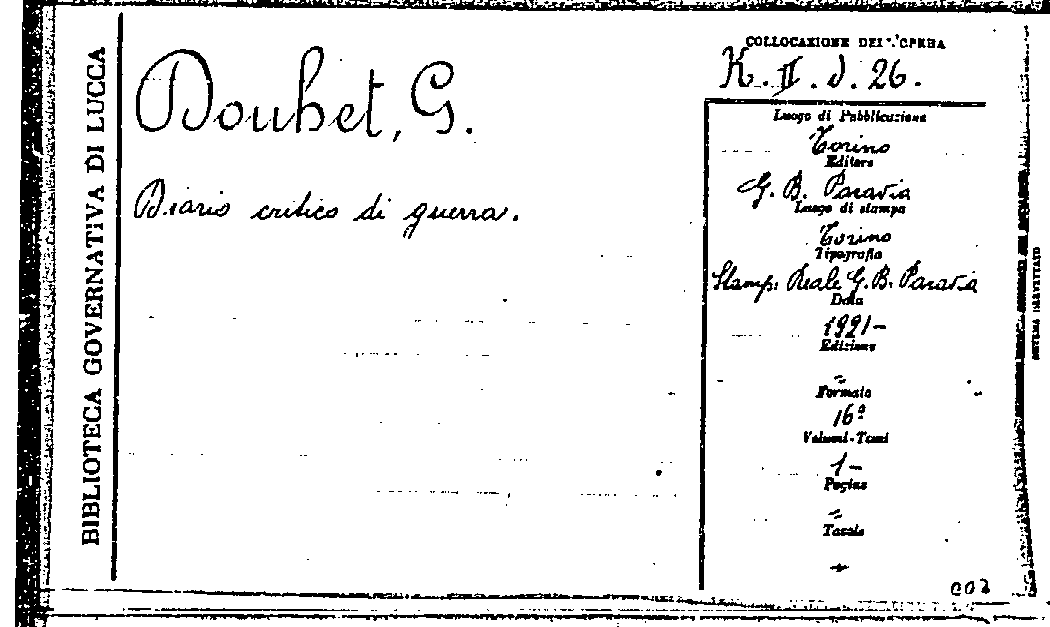 BIBLIOTECA GOVERNATIVA DI LUCCA
Douhet, G.
Diario critico di guerra.
COLLOCAZIONE DELL'OPERA
K. II. d. 26.
Luogo di Pubblicazione
Torino
Editore
G. B. Paravia
Luogo di stampa
Torino
Tipografia
Stamp. Reale G. B. Paravia
Data
1921-
Edizione
~
Formato
16º
Volumi-Tomi
1-
Pagine
~
Tavole
007